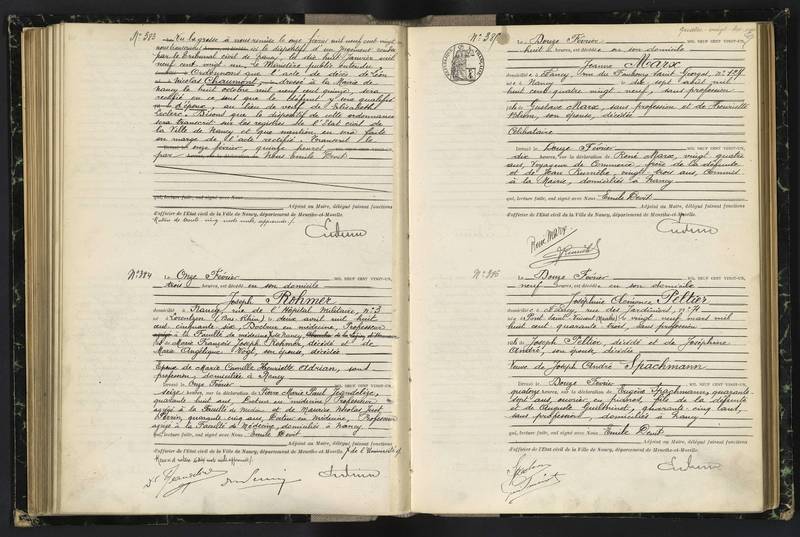 N° 383
Vu la grosse à nous remise le onze février mil neuf cent vingt
un le dispositif d'un jugement rendu
par le Tribunal civil de Nancy, le dix huit janvier mil
neuf cent vingt un. Le Ministère public entendu.
Ordonnons que l'acte de décès de Léon
Nicolas Chaumont dressé à la Mairie de
Nancy le huit octobre mil neuf cent quinze, sera
rectifié en ce sens que le défunt y sera qualifié
d'époux, au lieu de veuf de Elisabeth
Leclerc. Disons que le dispositif de cette ordonnance
sera transcrit sur les registres de l'Etat civil de
la Ville de Nancy et que mention en sera faite
en marge de l'acte rectifié. Transcrit le
onze février, quinze heures
par Nous Emile Devit
qui, lecture faite, ont signé avec Nous
Adjoint au Maire, délégué faisant fonctions
d'officier de l'Etat civil de la Ville de Nancy, département de Meurthe-et-Moselle.
N° 384
Le Onze Février MIL NEUF CENT VINGT-UN,
trois heures, est décédé en son domicile
Joseph Rohmer
domicilié à Nancy, rue de l'Hôpital Militaire, n° 3
(Bas-Rhin) le deux avril mil huit
cent cinquante six Docteur en médecine, Professeur
à la Faculté de médecine de Nancy,
fils de Marie François Joseph Rohmer, décédé et de
Marie Angélique Vogt, son épouse, décédée
Epoux de Marie Camille Henriette Adrian, sans
profession, domiciliée à Nancy
Dressé le Onze Février
seize heures, sur la déclaration de Pierre Marie Paul Jeandelize,
quarante huit ans Docteur en médecine Professeur
agrégé à la Faculté de Médec. et de Maurice Nicolas Just
Perrin, quarante cinq ans, Docteur en médecine, Professeur
agrégé à la Faculté de Médecine, domiciliés à Nancy
qui, lecture faite, ont signé avec Nous Emile Devit
Adjoint au Maire, délégué faisant fonctions
d'officier de l'Etat civil de la Ville de Nancy, département de Meurthe-et-Moselle
N° 385
Le Douze Février MIL NEUF CENT VINGT-UN,
huit heures, est décédée en son domicile
Jeanne Marx
domiciliée à Nancy, rue du Faubourg Saint Georges, n° 127
née à Nancy le sept août mil
huit cent quatre vingt neuf, sans profession
fille de Gustave Marx, sans profession et de Henriette
Blum, son épouse, décédée
Célibataire
Dressé le Douze Février
dix heures, sur la déclaration de René Marx, vingt quatre
ans, Voyageur de Commerce, frère de la défunte
et de Jean vingt trois ans, Commis
à la Mairie, domiciliés à Nancy
qui, lecture faite, ont signé avec Nous Emile Devit
Adjoint au Maire, délégué faisant fonctions
d'officier de l'Etat civil de la Ville de Nancy, département de Meurthe-et-Moselle.
René Marx
N° 386
Le Douze Février MIL NEUF CENT VINGT-UN,
neuf heures, est décédée en son domicile
Joséphine Clémence Peltier
domiciliée à Nancy, rue des Jardiniers, n° 71
née à Pont Saint Vincent le vingt neuf mars mil
huit cent quarante trois, sans profession
fille de Joseph Peltier décédé et de Joséphine
André, son épouse, décédée
Veuve de Joseph André Spachmann
Dressé le Douze Février
quatorze heures, sur la déclaration de Eugène Spachmann, quarante
sept ans, fils de la défunte,
et de Auguste quarante cinq ans,
sans profession, domiciliés à Nancy
qui, lecture faite, ont signé avec Nous Emile Devit
Adjoint au Maire, délégué faisant fonctions
d'officier de l'Etat civil de la Ville de Nancy, département de Meurthe-et-Moselle.